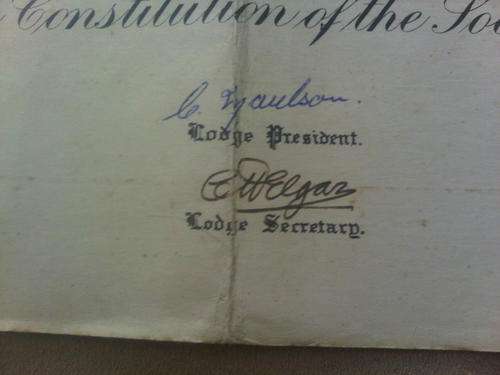 Constitution of the Soc
C.
Lodge President.
Elgar
Lodge Secretary.